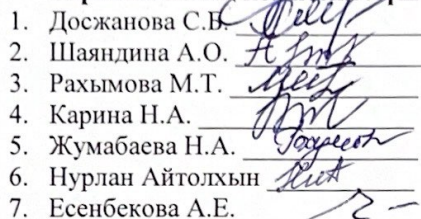 1. Досжанова С.Б.
2. Шаяндина А.О.
3. Рахымова М.Т.
4. Карина Н.А.
5. Жумабаева Н.А.
6. Нурлан Айтолхын
7. Есенбекова А.Е.